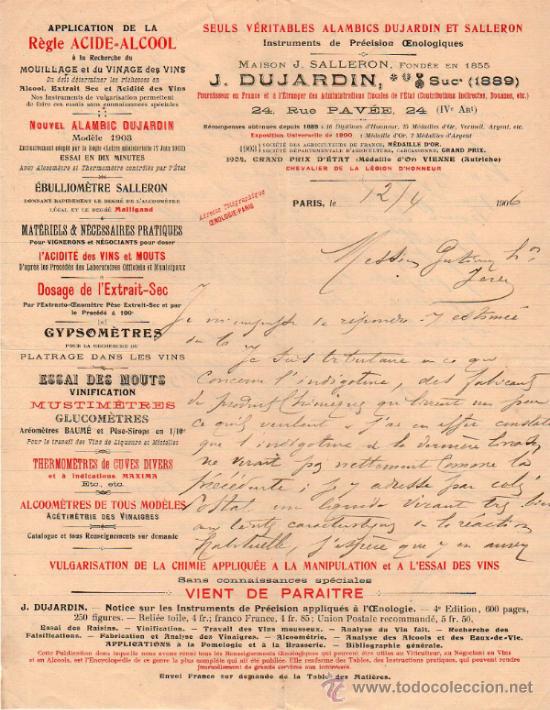 APPLICATION DE LA
Règle ACIDE-ALCOOL
à la Recherche du
MOUILLAGE et du VINAGE des VINS
Alcool, Extrait Sec et Acidité des Vins
Nos Instruments de vulgarisation permettent
de faire ces essais sans connaissances spéciales
NOUVEL ALAMBIC DUJARDIN
Modèle 1903
ESSAI EN DIX MINUTES
Avec Alcoomètre et Thermomètre contrôlés par l'État
ÉBULLIOMÈTRE SALLERON
DONNANT RAPIDEMENT LE DEGRÉ DE L'ALCOOMÈTRE
LÉGAL ET LE DEGRÉ Malligand
MATÉRIELS & NÉCESSAIRES PRATIQUES
Pour VIGNERONS et NÉGOCIANTS pour doser
l'ACIDITÉ des VINS et MOUTS
D'après les Procédés des Laboratoires Officiels et Municipaux
Dosage de l'Extrait-Sec
Par l'Extracto-Œnomètre Pèse Extrait-Sec et par
le Procédé à 100°
GYPSOMÈTRES
POUR LA RECHERCHE DU
PLATRAGE DANS LES VINS
ESSAI DES MOUTS
VINIFICATION
MUSTIMÈTRES
GLUCOMÈTRES
Aréomètres BAUMÉ et Pèse-Sirops en 1/10°
Pour le travail des Vins de Liqueurs et Mistelles
THERMOMÈTRES de CUVES DIVERS
et à Indications MAXIMA
Etc., etc.
ALCOOMÈTRES DE TOUS MODÈLES
ACÉTIMÉTRIE DES VINAIGRES
Catalogue et tous Renseignements sur demande
SEULS VÉRITABLES ALAMBICS DUJARDIN ET SALLERON
Instruments de Précision Œnologiques
MAISON J. SALLERON, FONDÉE EN 1855
J. DUJARDIN, Sucr (1889)
Fournisseur en France et à l'Étranger des Administrations Fiscales de l'État (Contributions Indirectes, Douanes, etc.)
24, RUE PAVÉE, 24 (IVe Arrt)
Récompenses obtenues depuis 1889 : 16 Diplômes d'Honneur, 15 Médailles d'Or, Vermeil, Argent, etc.
Exposition Universelle de 1900. 1 Médaille d'Or, 7 Médailles d'Argent
(1903) SOCIÉTÉ DES AGRICULTEURS DE FRANCE, MÉDAILLE D'OR.
SOCIÉTÉ DÉPARTEMENTALE D'AGRICULTURE, CARCASSONNE, GRAND PRIX.
1904, GRAND PRIX D'ÉTAT (Médaille d'Or) VIENNE (Autriche)
CHEVALIER DE LA LÉGION D'HONNEUR
Adresse Télégraphique
ŒNOLOGIE-PARIS
PARIS, le 12/4 1906
Messieurs
Jerez
Je m'empresse de répondre à estimée
je suis tributaire en ce qui
concerne l'indigotine, des fabricants
de produits chimiques qui livrent un peu
ce qu'ils veulent. J'ai en effet constaté
que l'indigotine de la dernière
ne virait pas nettement comme la
précédente; j'y adresse par colis
postal un liquide virant très bien
au caractéristique de la réaction
habituelle, j'espère que
VULGARISATION DE LA CHIMIE APPLIQUÉE A LA MANIPULATION et A L'ESSAI DES VINS
Sans connaissances spéciales
VIENT DE PARAITRE
J. DUJARDIN. - Notice sur les Instruments de Précision appliqués à l'Œnologie. - 4e Edition, 600 pages,
250 figures. - Reliée toile, 4 fr.; franco France, 4 fr. 85; Union Postale recommandé, 5 fr. 50.
Essai des Raisins. - Vinification. - Travail des Vins mousseux. - Analyse du Vin fait. - Recherche des
Falsifications. - Fabrication et Analyse des Vinaigres. - Alcoométrie. - Analyse des Alcools et des Eaux-de-Vie.
APPLICATIONS à la Pomologie et à la Brasserie. - Bibliographie générale.
Cette Publication dans laquelle nous avons réuni tous les Renseignements Œnologiques qui peuvent être utiles au Viticulteur, au Négociant en Vins
et en Alcools, est l'Encyclopédie de ce genre la plus complète qui ait été publiée. Elle renferme des Tables, des Instructions pratiques, qui peuvent rendre
journellement de grands services aux intéressés.
Envoi Franco sur demande de la Table des Matières.
todocoleccion.net